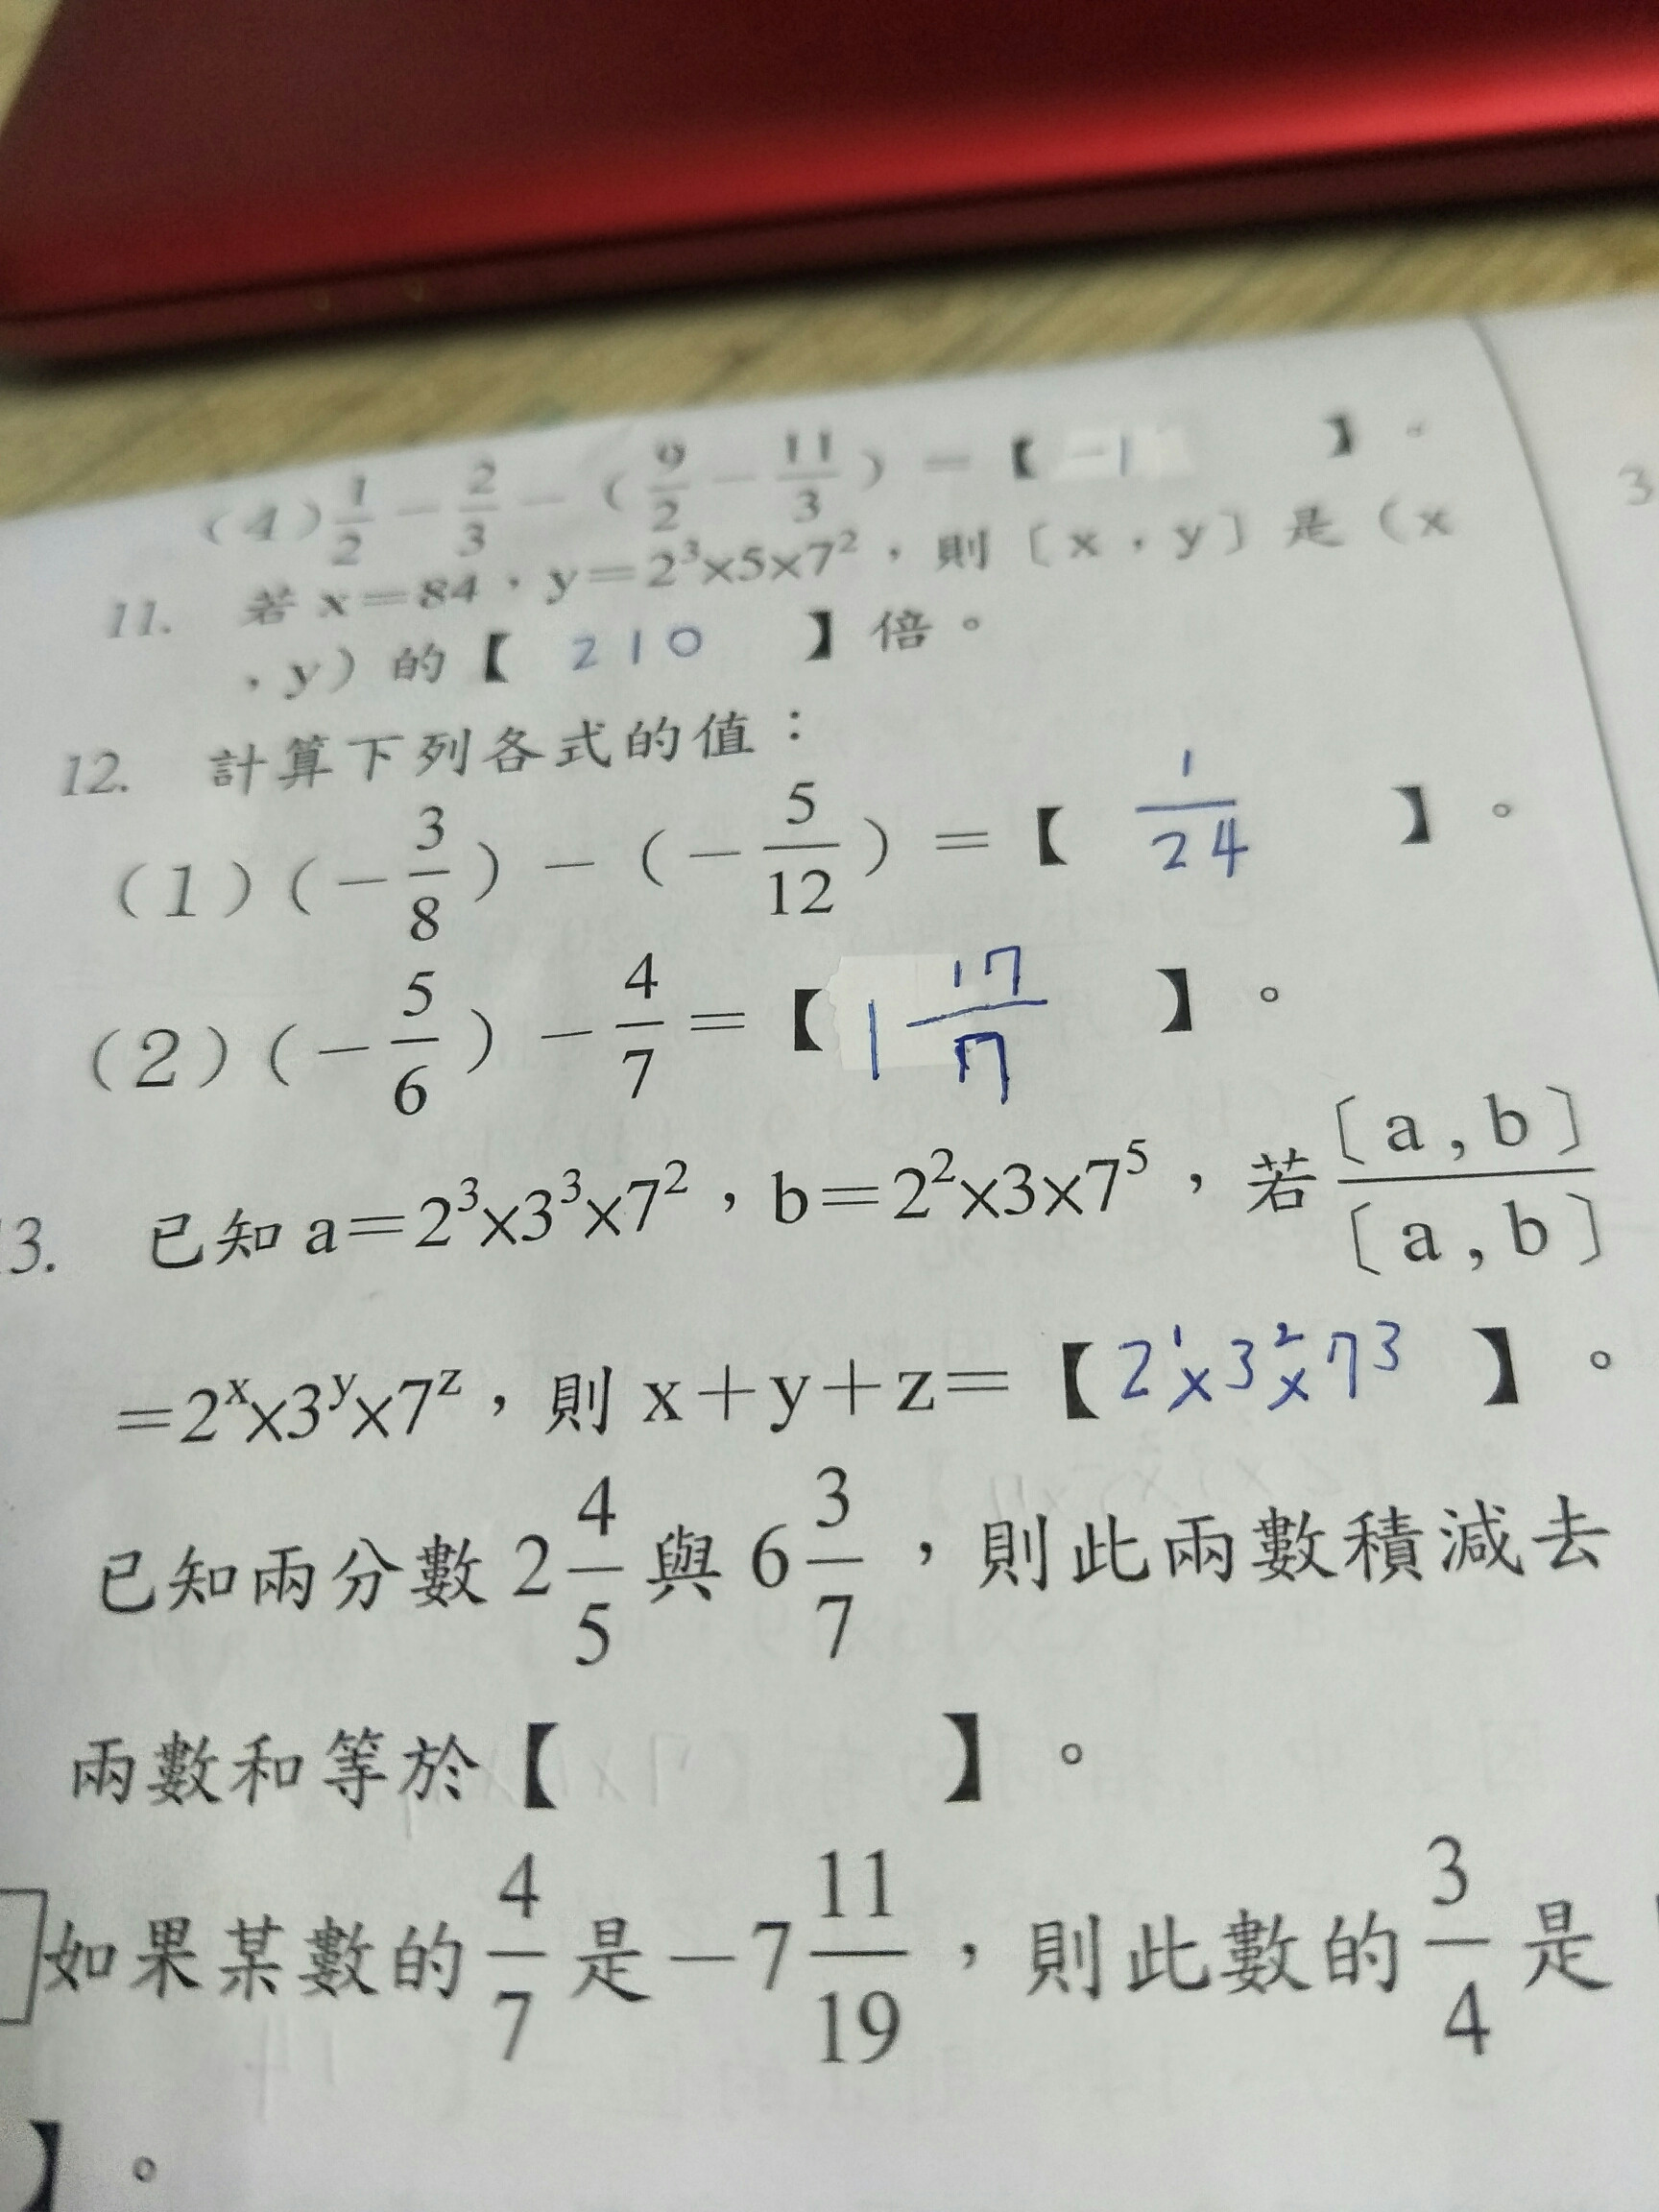 (4) 1/2 − 2/3 − ( 9/2 − 11/3 ) = 【 −1 】。
11. 若 x=84,y=2³×5×7²,則〔x,y〕是(x
,y)的【 210 】倍。
12. 計算下列各式的值:
(1) (−3/8) − (−5/12) = 【 1/24 】。
(2) (−5/6) − 4/7 = 【 1 17/7 】。
3. 已知 a=2³×3³×7²,b=2²×3×7⁵,若 〔a,b〕/〔a,b〕
=2ˣ×3ʸ×7ᶻ,則 x+y+z=【 2¹×3²×7³ 】。
已知兩分數 2 4/5 與 6 3/7,則此兩數積減去
兩數和等於【 】。
如果某數的 4/7 是 −7 11/19,則此數的 3/4 是
】。
3